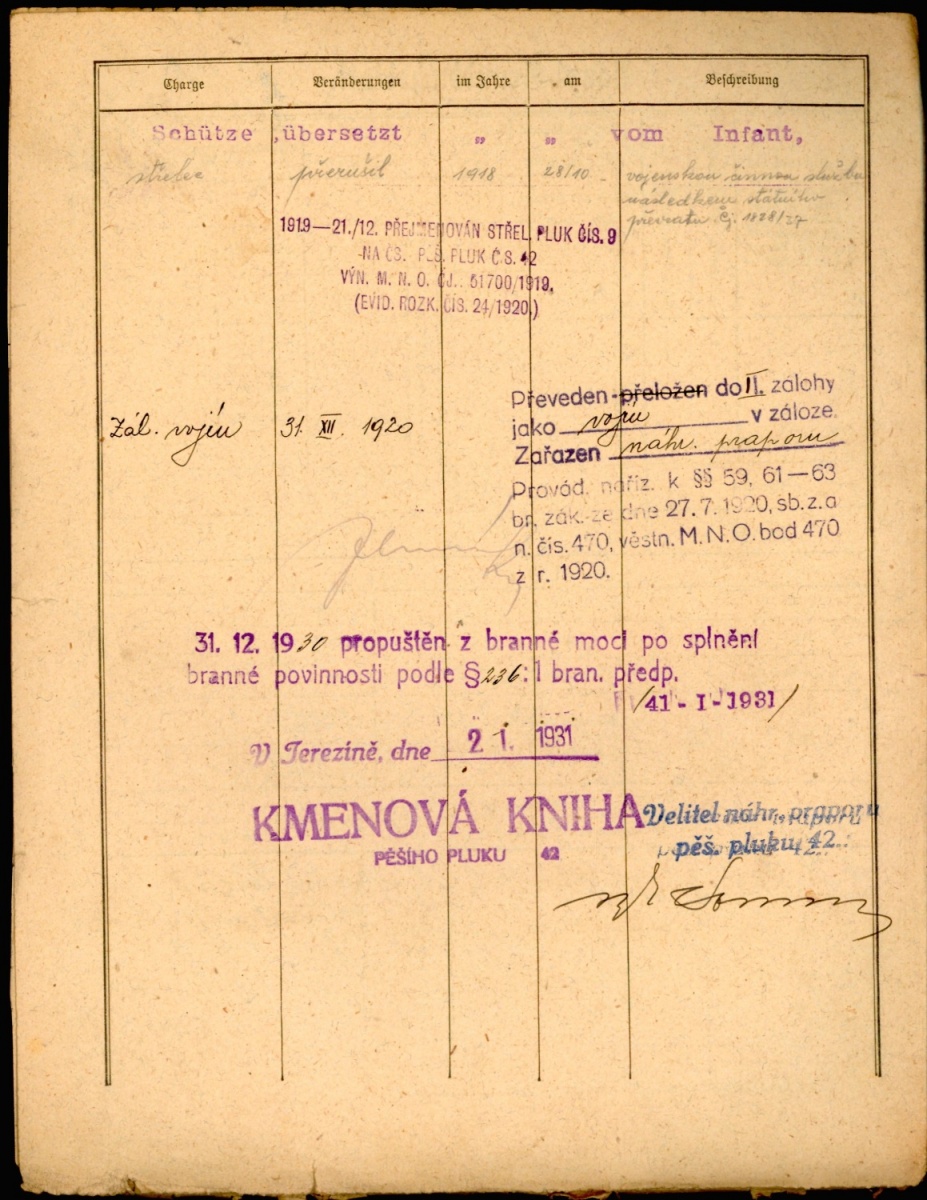 Charge Veränderungen im Jahre am Beschreibung
Schütze „übersetzt „ „ vom Infant,
střelec přerušil 1918 28/10 vojenskou činnou službu
následkem státního
převratu. Čj. 1828/27
1919—21./12. PŘEJMENOVÁN STŘEL. PLUK ČÍS. 9
NA ČS. PĚŠ. PLUK Č.S. 42
VÝN. M. N. O. ČJ.. 51700/1919,
(EVID. ROZK. ČÍS. 24/1920.)
Převeden-přeložen do II. zálohy
Zál. vojín 31. XII. 1920 jako vojín v záloze.
Zařazen náhr. praporu
Provád. naříz. k §§ 59, 61—63
br. zák. ze dne 27. 7. 1920, sb. z. a
n. čís. 470, věstn. M. N. O. bod 470
z r. 1920.
31. 12. 1930 propuštěn z branné moci po splnění
branné povinnosti podle § 236: 1 bran. předp.
/41 - I - 1931/
V Terezíně, dne 2 I. 1931
KMENOVÁ KNIHA
PĚŠÍHO PLUKU 42
Velitel náhr. praporu
pěš. pluku 42.